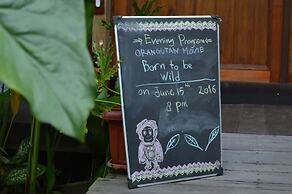 ⇒ Evening Program ⇐
ORANGUTAN MOVIE
Born to be
Wild
on June 15th 2016
8 pm